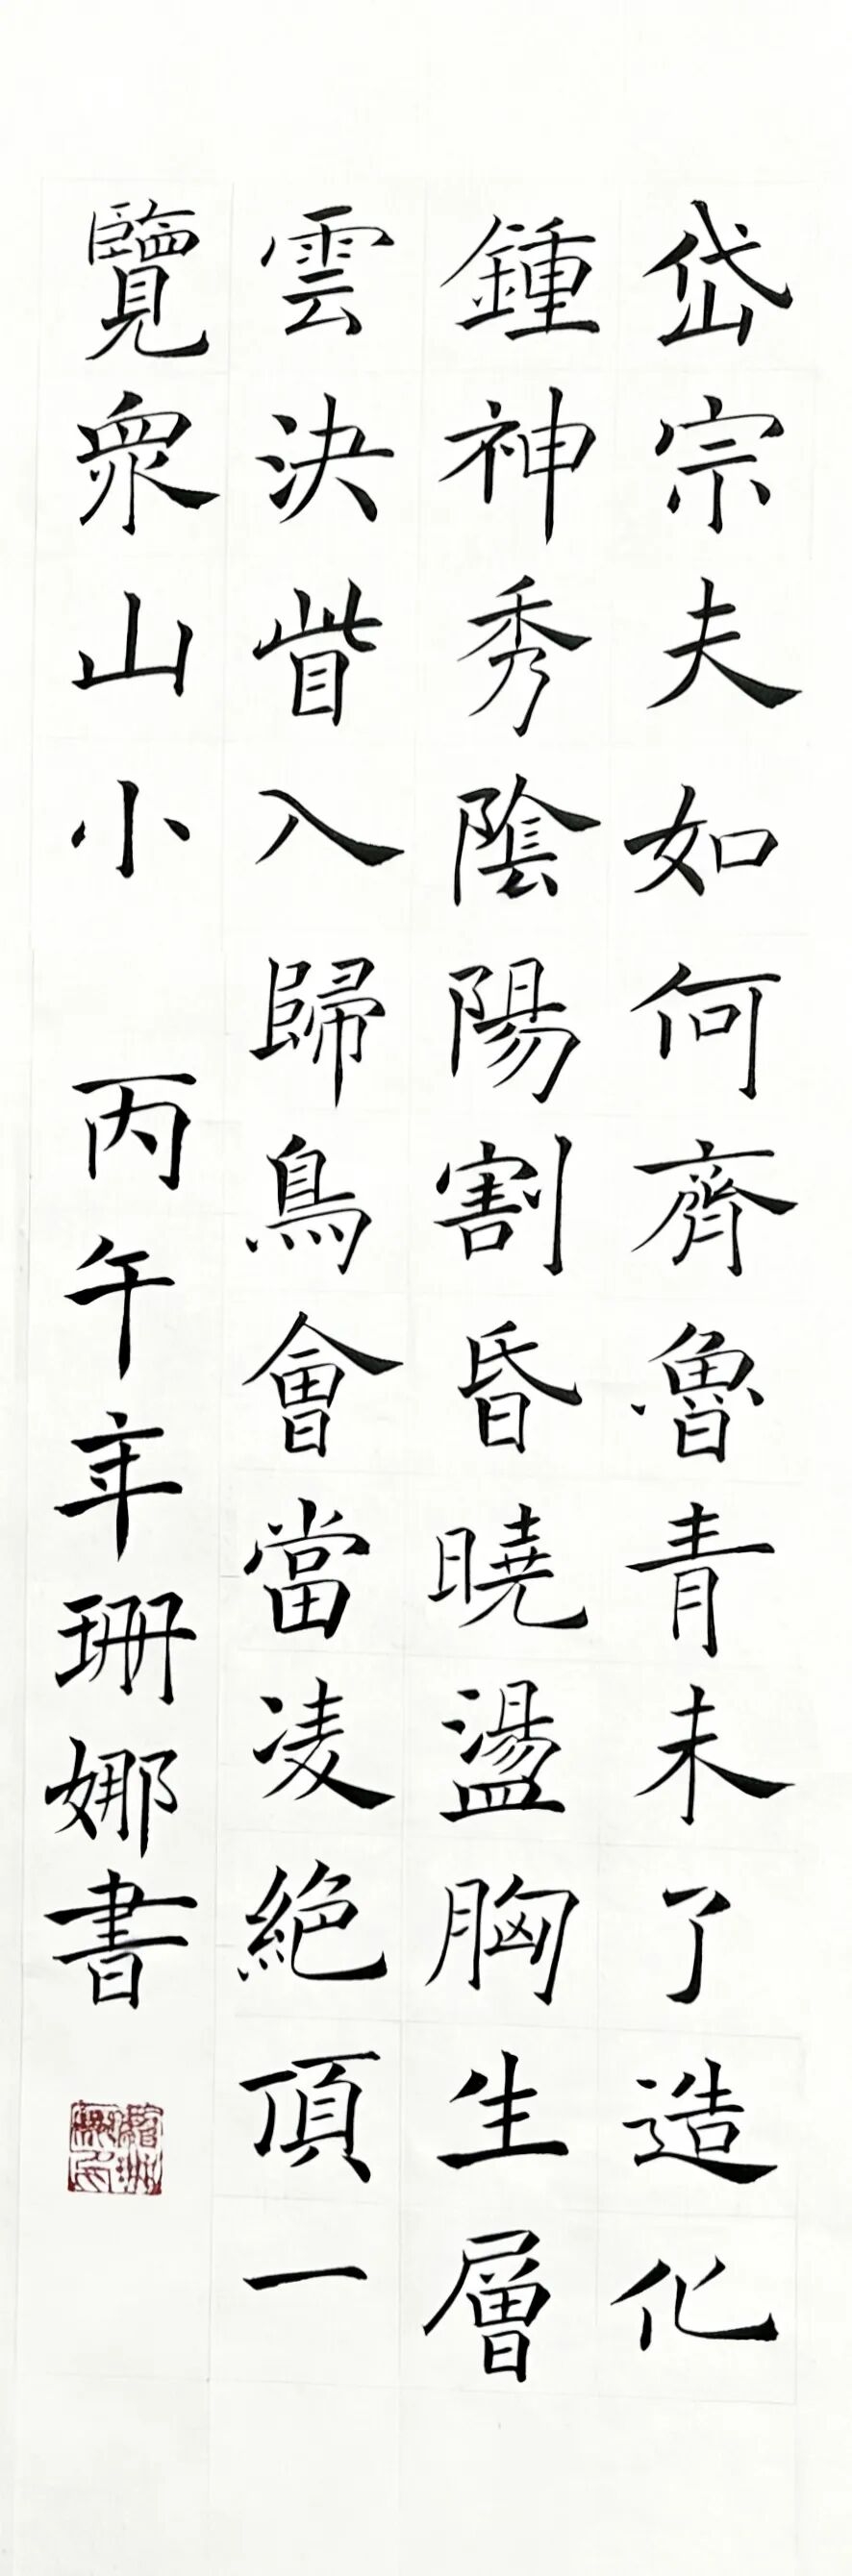 岱宗夫如何齊魯青未了造化
鍾神秀陰陽割昏曉盪胸生層
雲決眥入歸鳥會當凌絕頂一
覽衆山小 丙午年珊娜書